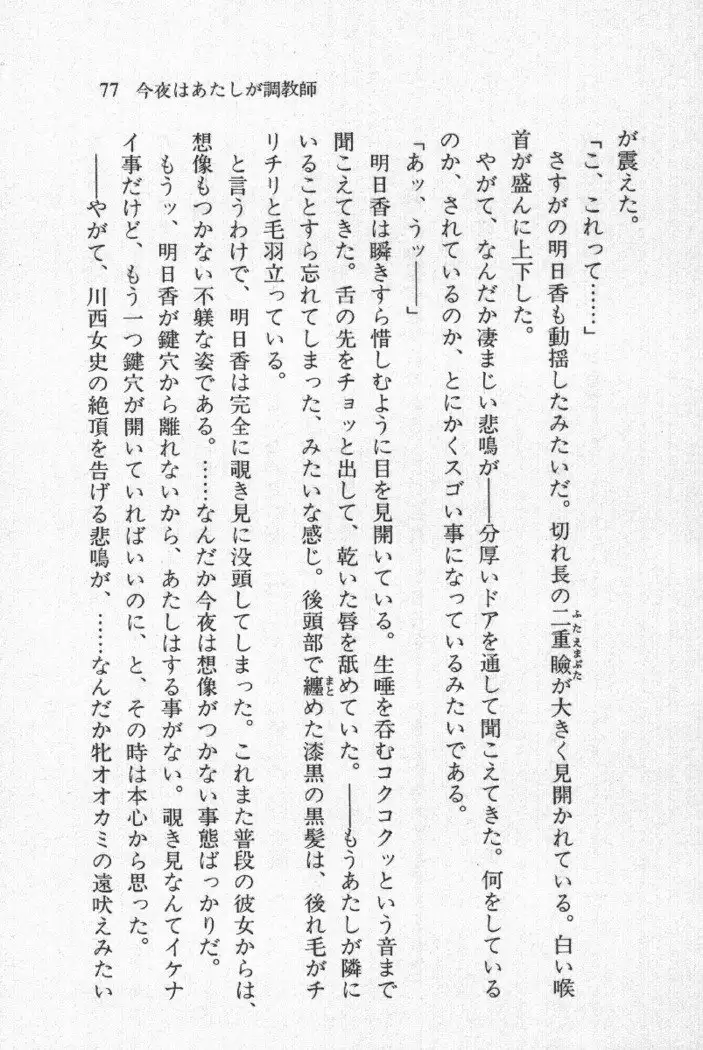 77 今夜はあたしが調教師
が震えた。
「こ、これって……」
さすがの明日香も動揺したみたいだ。切れ長の二重瞼が大きく見開かれている。白い喉
ふたえまぶた
首が盛んに上下した。
やがて、なんだか凄まじい悲鳴が――分厚いドアを通して聞こえてきた。何をしている
のか、されているのか、とにかくスゴい事になっているみたいである。
「あッ、うッ――」
明日香は瞬きすら惜しむように目を見開いている。生唾を呑むコクコクッという音まで
聞こえてきた。舌の先をチョッと出して、乾いた唇を舐めていた。――もうあたしが隣に
いることすら忘れてしまった、みたいな感じ。後頭部で纏めた漆黒の黒髪は、後れ毛がチ
まと
リチリと毛羽立っている。
と言うわけで、明日香は完全に覗き見に没頭してしまった。これまた普段の彼女からは、
想像もつかない不躾な姿である。……なんだか今夜は想像がつかない事態ばっかりだ。
もうッ、明日香が鍵穴から離れないから、あたしはする事がない。覗き見なんてイケナ
イ事だけど、もう一つ鍵穴が開いていればいいのに、と、その時は本心から思った。
――やがて、川西女史の絶頂を告げる悲鳴が、……なんだか牝オオカミの遠吠えみたい